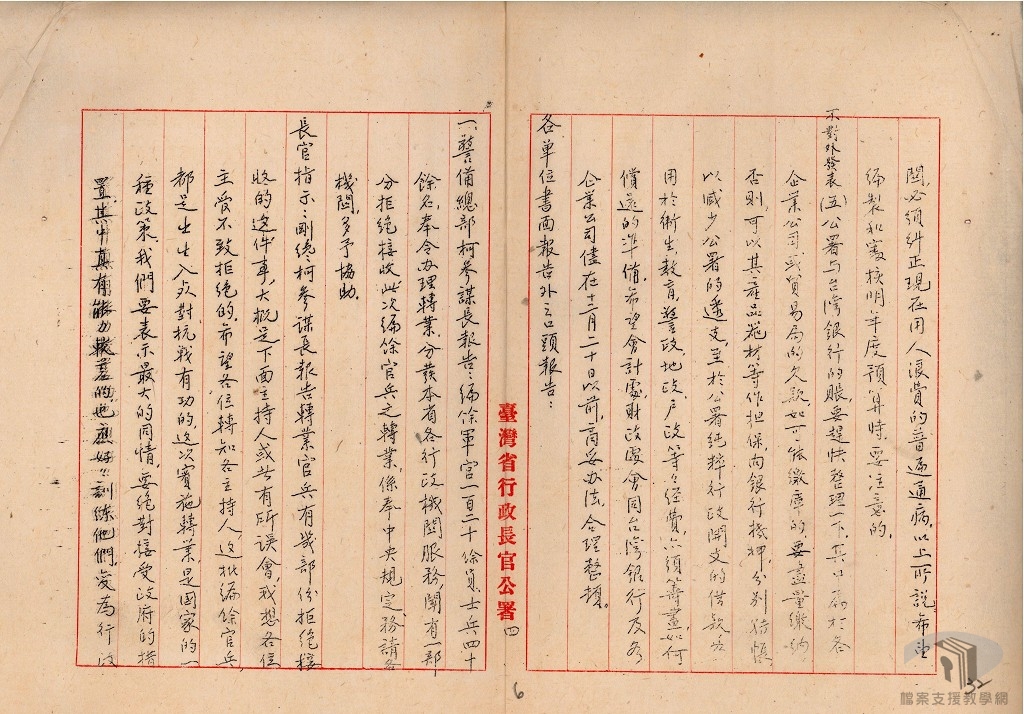 關，必須糾正現在用人浪費的普遍通病，以上所說希望
編製和審核明年度預算時，要注意的。
不對外發表(五)公署与台灣銀行的賬要趕快整理一下，其中屬於各
企業公司或貿易局的欠款，如可能繳庫的，要盡量繳納
否則，可以其產品器材等作担保，向銀行抵押，分別結帳
以減少公署的透支，至於公署純粹行政開支的借款，
用於衛生，教育，警政，地政，戶政等々經費，亦須籌畫如何
償還的準備，希望會計處，財政處會同台灣銀行及各
企業公司儘在十二月二十日以前，商妥办法，合理整頓。
各單位書面報告外之口頭報告：
臺灣省行政長官公署
四
一、警備總部柯參謀長報告：編餘軍官一百二十餘員，士兵四十
餘名，奉令办理轉業，分發本省各行政機關服務，聞有一部
分拒絕接收，此次編餘官兵之轉業，係奉中央規定，務請各
機關多予協助。
長官指示：剛纔柯參謀長報告轉業官兵有幾部份拒絕接
收的這件事，大概是下面主持人或者有所誤會，我想各位
主管不致拒絕的，希望各位轉知各主持人，這批編餘官兵，
都是出生入死對抗戰有功的，這次實施轉業，是國家的一
種政策，我們要表示最大的同情，要絕對接受政府的措
置，其中真有能力較差的，也應好々訓練他們，安為行政
6
32
檔案支援教學網